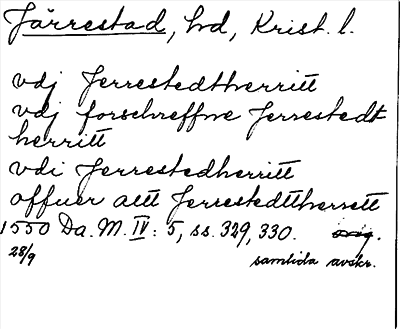 Järrestad, hd, Krist. l.
vdj Jerrestedtherritt
vdj forschreffne Jerrestedt
herritt
vdi Jerrestedherritt
offuer altt Jerrestedttherrett
1550 Da. M. IV: 5, ss. 329, 330. orig.
28/9 samtida avskr.